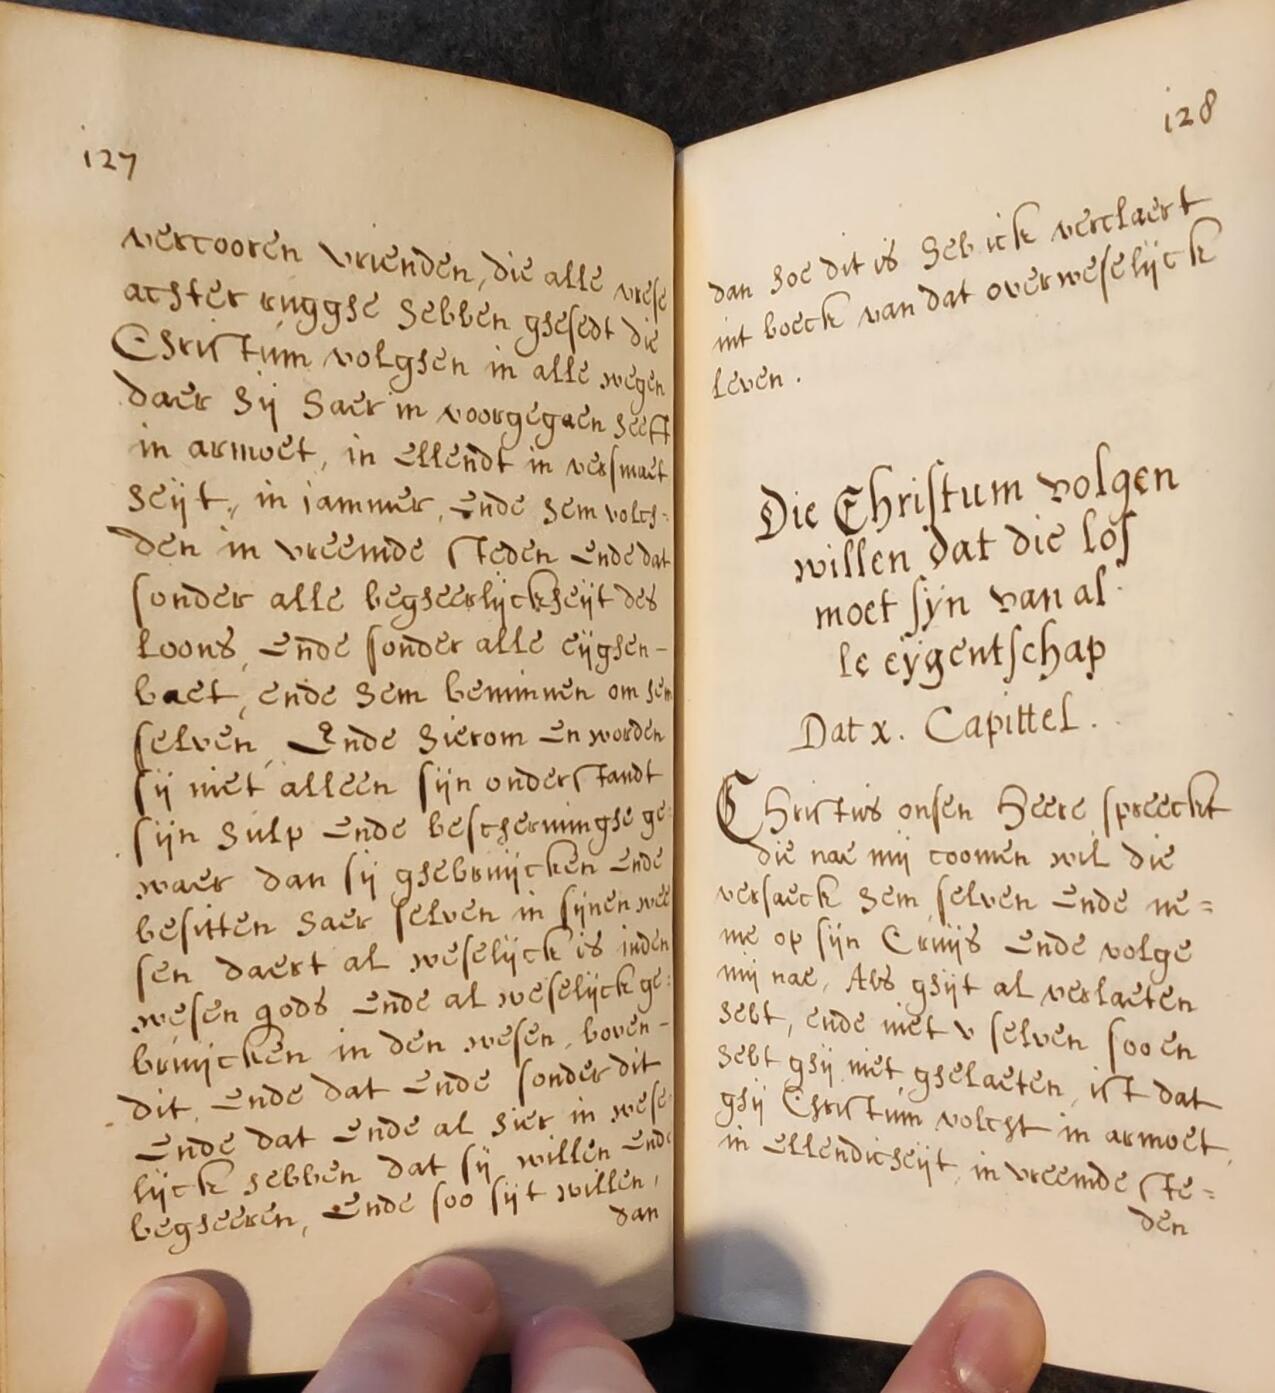 127
vercooren vrienden, die alle vrese
achter rugghe hebben ghesedt die
Christum volghen in alle wegen
daer hij haer in voorgegaen heeft
in armoet, in ellendt in versmaet
heijt, in jammer, ende hem volch-
den in vreemde steden ende dat
sonder alle begheerlijckheijt des
loons, ende sonder alle eijghen-
baet, ende hem beminnen om hem
selven, Ende hierom en worden
sij niet alleen sijn onderstandt
sijn hulp ende bescherminghe ge-
waer dan sij ghebruijcken ende
besitten haer selven in sijnen wee
sen daert al weselijck is inden
wesen gods ende al weselijck ge-
bruijcken in den wesen, boven-
dit, ende dat ende sonder dit
Ende dat ende al hier in wese-
lijck hebben dat sij willen ende
begheeren, ende soo sijt willen,
dan
128
dan hoe dit is heb ick verclaert
int boeck van dat overweselijck
leven.
Die Christum volgen
willen dat die los
moet sijn van al-
le eygentschap
Dat x. Capittel.
Christus onsen Heere spreeckt
die nae mij coomen wil die
versaeck hem selven ende ne=
me op sijn Cruijs ende volge
mij nae, Als ghijt al verlaeten
hebt, ende niet v selven soo en
hebt ghij niet ghelaeten, ist dat
ghij Christum volcht in armoet,
in ellendicheijt, in vreemde ste=
den